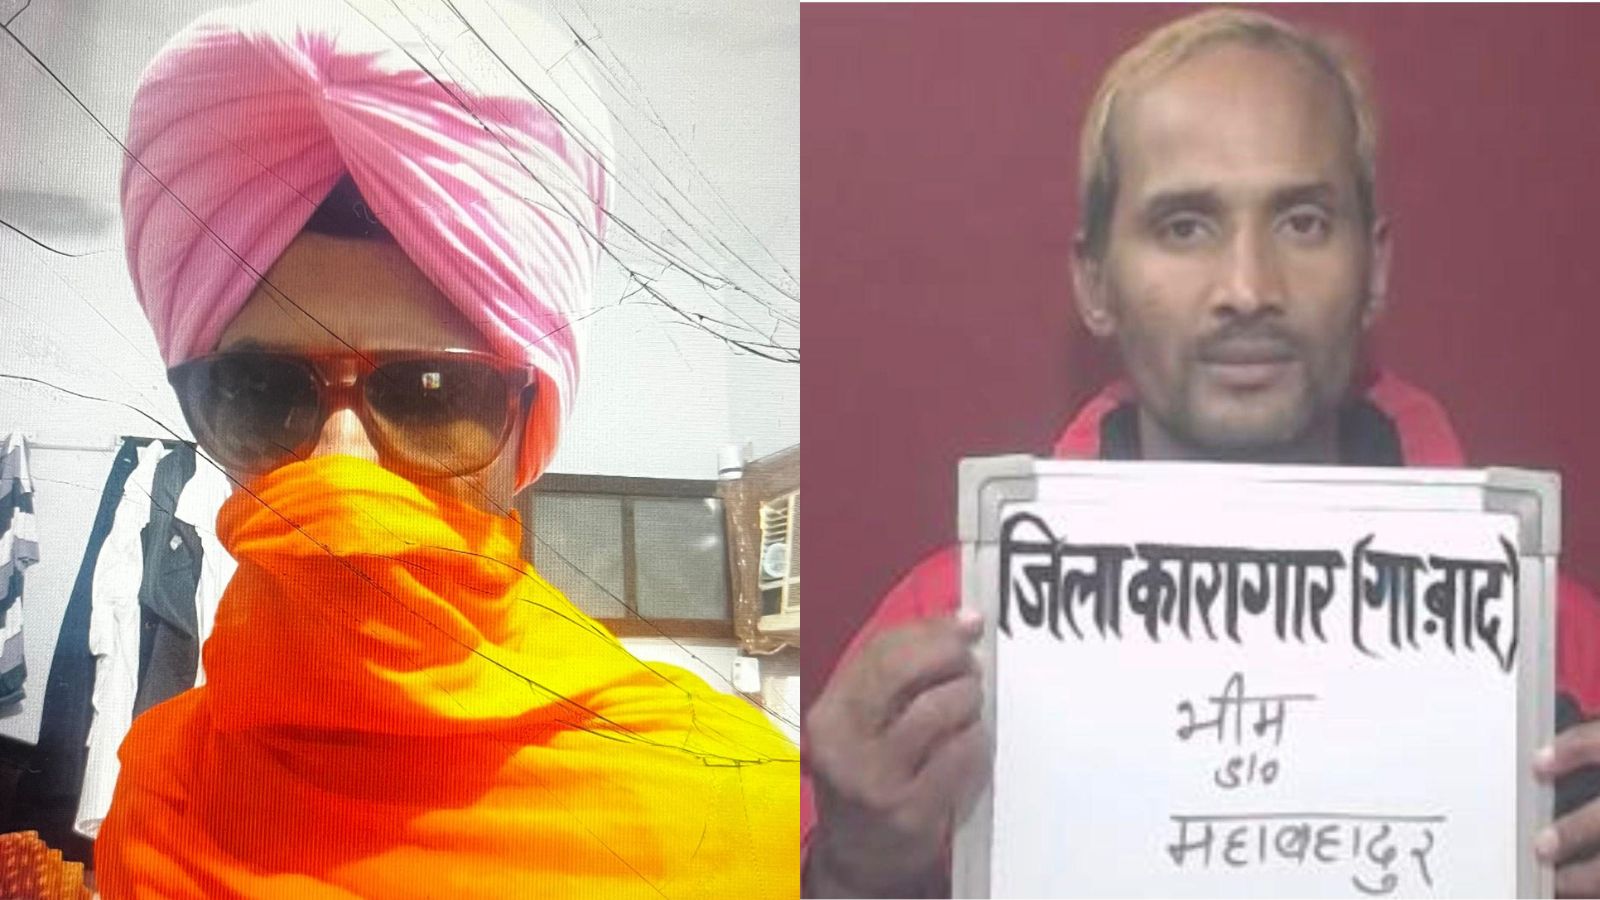 जिला कारागार (गा.बाद)
भीम
S/०
महाबहादुर